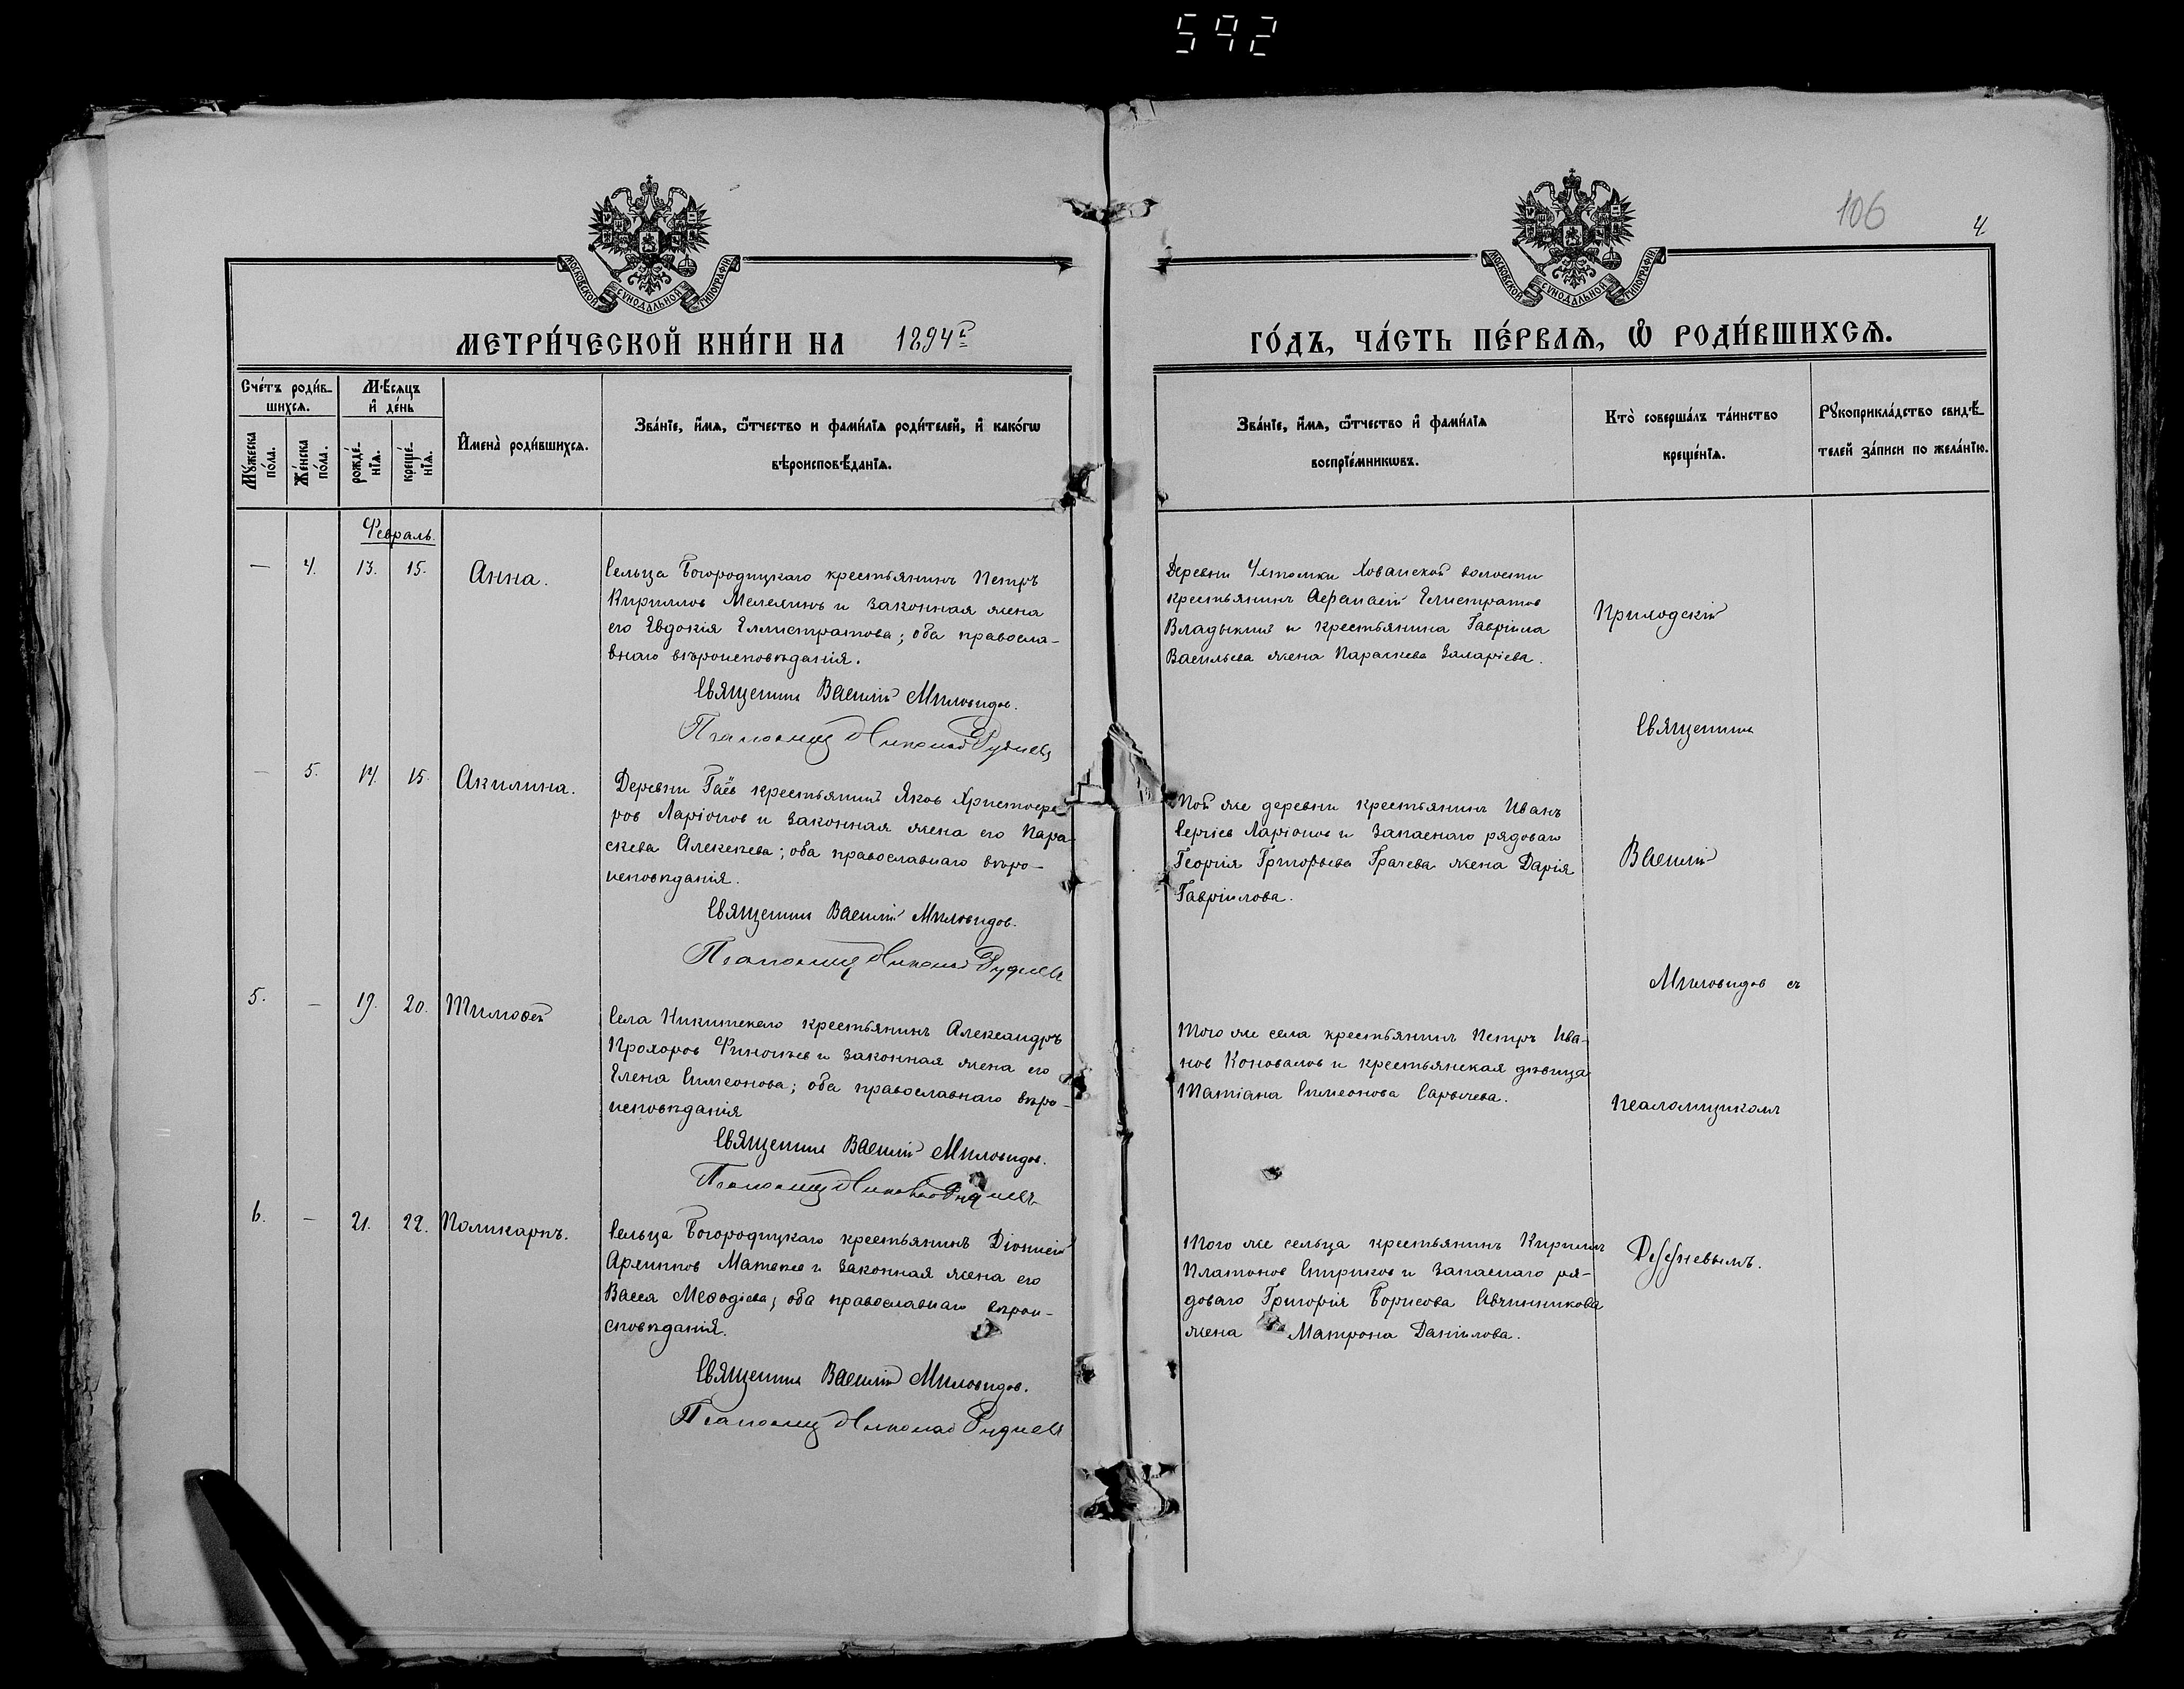 592
106
4.
МОСКОВСКОЙ СѴНОДАЛЬНОЙ ТИПОГРАФІИ
МОСКОВСКОЙ СѴНОДАЛЬНОЙ ТИПОГРАФІИ
МЕТРИ́ЧЕСКОЙ КНИ́ГИ НА 1894 г.
ГО́ДЪ, ЧА́СТЬ ПЕ́РВАѦ, Ѡ҆ РОДИ́ВШИХСѦ.
Сче́тъ роди́в-
шихсѧ.
Мꙋ́жеска по́ла.
Же́нска по́ла.
Мѣ́сѧцъ
и҆ де́нь
рожде́-
нїѧ.
креще́-
нїѧ.
И҆мена̀ роди́вшихсѧ.
Зва́нїе, и҆́мѧ, ѻ҆́тчество и фами́лїѧ роди́телей, и҆ како́гѡ
вѣроисповѣ́данїѧ.
Зва́нїе, и҆́мѧ, ѻ҆́тчество и҆ фами́лїѧ
воспрїе́мникѡвъ.
Кто̀ соверша́лъ та́инство
креще́нїѧ.
Рꙋкоприкла́дство свидѣ́-
телей за́писи по жела́нїю.
Февраль.
— 4. 13. 15. Анна.
Сельца Богородицкаго крестьянинъ Петръ
Кириллов и законная жена
его Евдокія Еллистратова; оба правосла-
внаго вѣроисповѣданія.
Священник Василій Миловидов.
Псаломщ Николай Руднев
Деревни Хованской волости
крестьянинъ Афанасій Елистратов
Владыкин и крестьянина Гавріила
Васильева жена Параскева Захаріева.
Приходскій
Священник
— 5. 14. 15. Акилина.
Деревни Гаёв крестьянин Яков Христофо-
ров Ларіонов и законная жена его Пара-
скева Алексеева; оба православнаго вѣро-
исповѣданія.
Священник Василій Миловидов.
Псаломщ Николай Руднев
Той же деревни крестьянинъ Иванъ
Сергіев Ларіонов и запаснаго рядоваго
Георгія Григорьева Грачева жена Дарія
Гавріилова.
Василій
Миловидов съ
5. — 19. 20. Тимоѳей
Села Никитскаго крестьянинъ Александръ
Прохоров Финогеев и законная жена его
Елена Симеонова; оба православнаго вѣро-
исповѣданія
Священник Василій Миловидов.
Псаломщ Николай Руднев
Того же села крестьянинъ Петръ Ива-
нов Коновалов и крестьянская дѣвица
Татіана Симеонова Сарычева.
псаломщиком
6. — 21. 22. Поликарпъ.
Сельца Богородицкаго крестьянинъ Діонисій
Архиппов Матвѣев и законная жена его
Васса Меѳодіева; оба православнаго вѣрои-
сповѣданія.
Священник Василій Миловидов.
Псаломщ Николай Руднев
Того же сельца крестьянинъ Кириллъ
Платонов Спириков и запаснаго ря-
доваго Григорія Борисова Овчинникова
жена Матрона Даніилова.